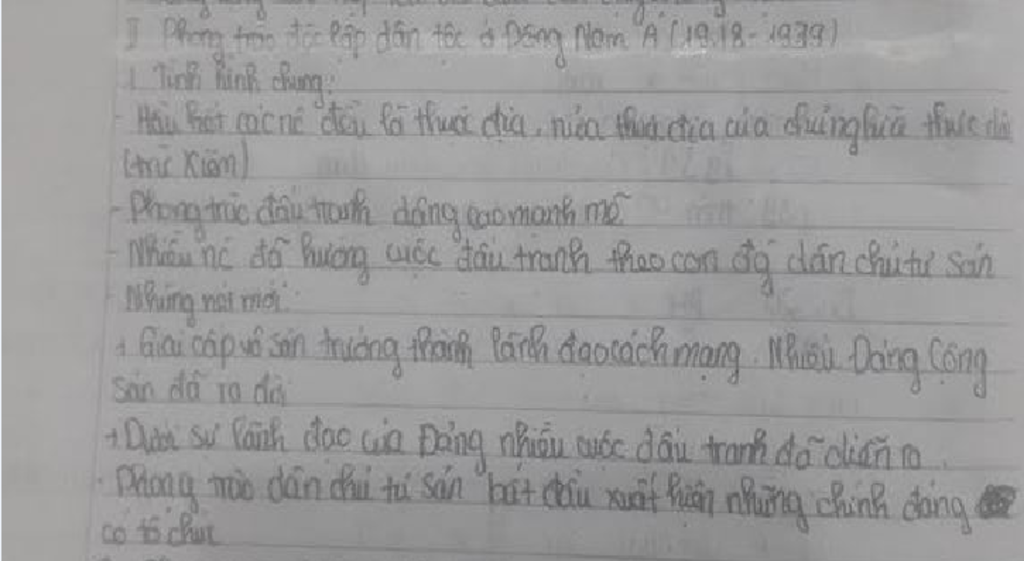 II Phong trào độc lập dân tộc ở Đông Nam Á (1918-1939)
1. Tình hình chung:
- Hầu hết các nc đều là thuộc địa, nửa thuộc địa của chủ nghĩa thực dân
(trừ Xiêm)
- Phong trào đấu tranh dâng cao mạnh mẽ
- Nhiều nc đã hướng cuộc đấu tranh theo con đg dân chủ tư sản
- Những nét mới:
+ Giai cấp vô sản trưởng thành lãnh đạo cách mạng. Nhiều Đảng Cộng
sản đã ra đời
+ Dưới sự lãnh đạo của Đảng nhiều cuộc đấu tranh đã diễn ra.
- Phong trào dân chủ tư sản bắt đầu xuất hiện những chính đảng
có tổ chức